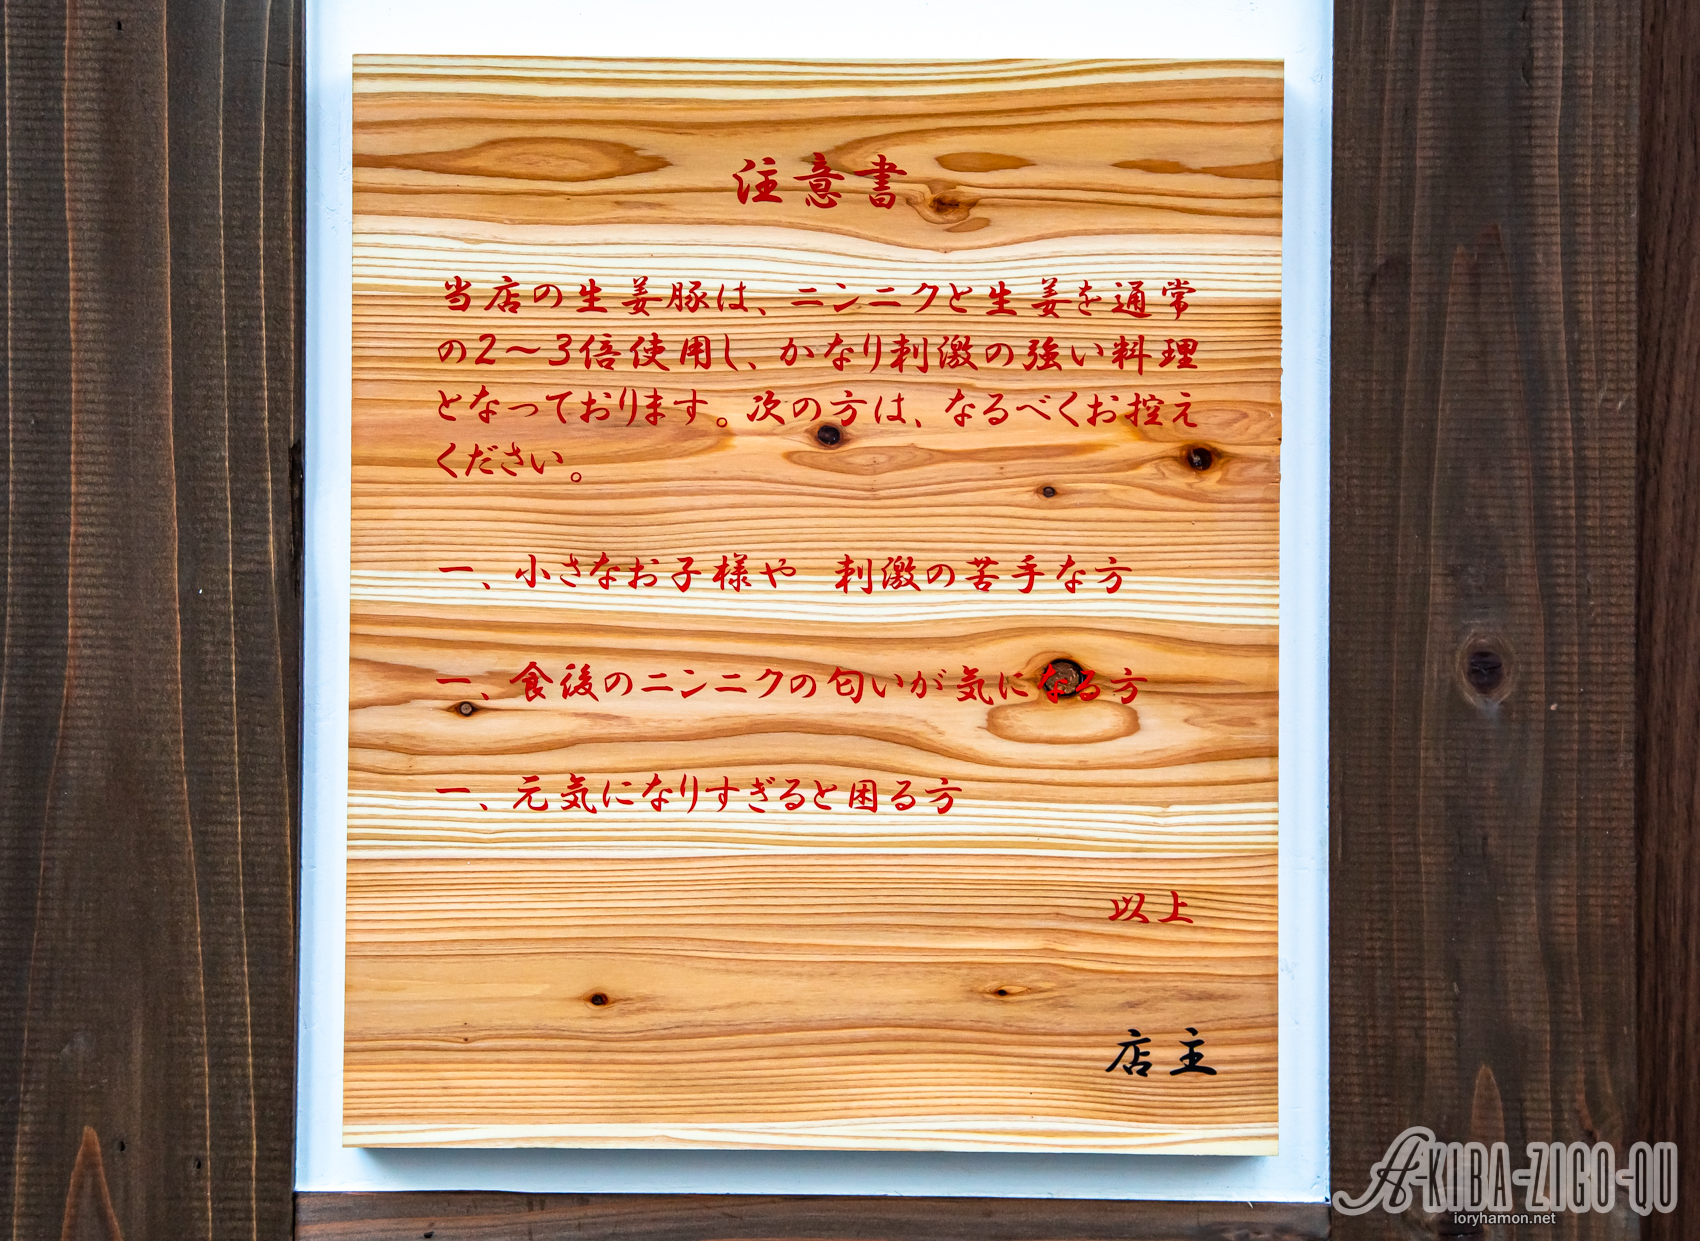 注意書
当店の生姜豚は、ニンニクと生姜を通常
の2〜3倍使用し、かなり刺激の強い料理
となっております。次の方は、なるべくお控え
ください。
一、小さなお子様や 刺激の苦手な方
一、食後のニンニクの匂いが気になる方
一、元気になりすぎると困る方
以上
店主
A-KIBA-ZIGO-QU
ioryhamon.net